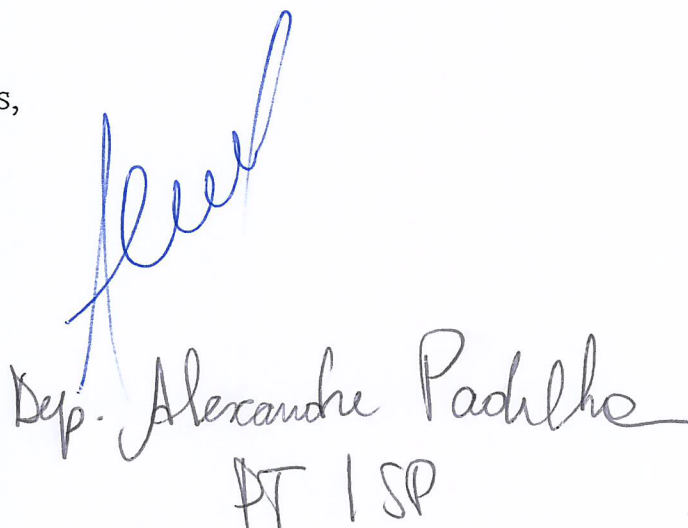 s,
Dep. Alexandre Padilha
PT / SP